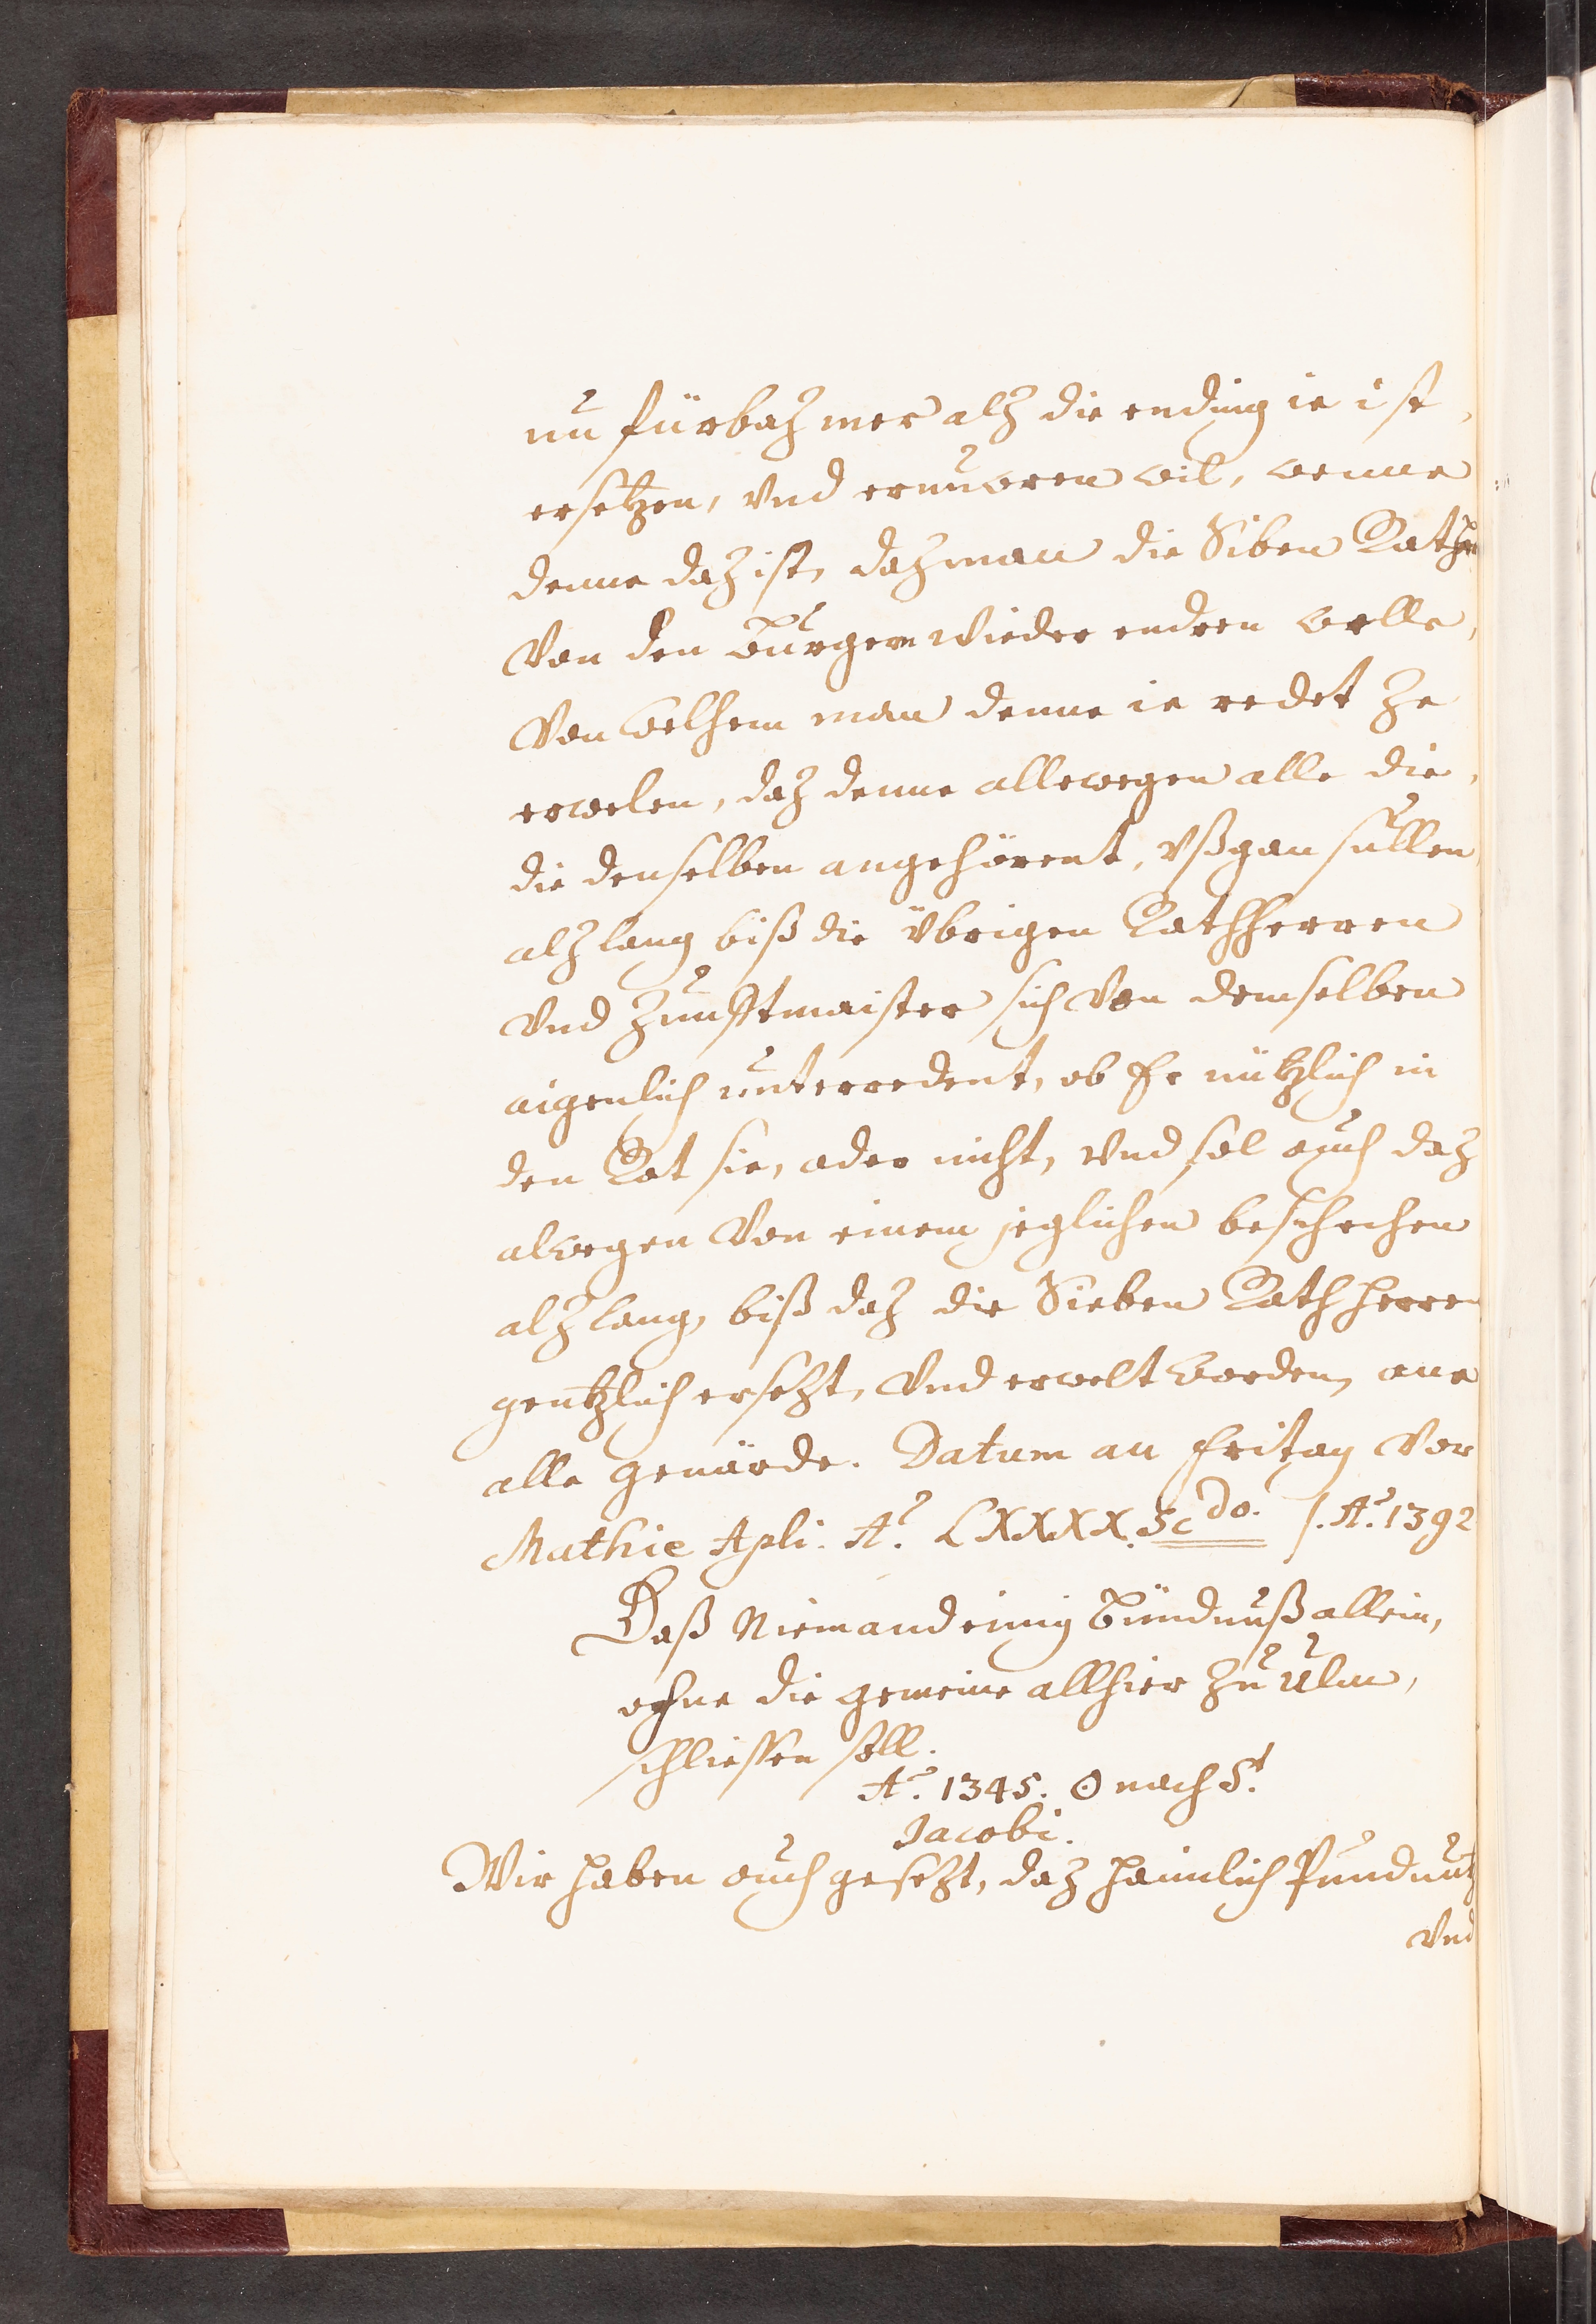 nu fürbaz mer alz die ending ie ist,
ersetzen, vnd ernuweren wil, wenne
denne daz ist, daz man die Siben Rathe
Von den burgern wieder endren welle,
Von welhem man denne ie redet ze
erwelen, daz denne allewegen alle die,
die denselben angehörent, vßgan sullen
alz lang biß die übrigen Rathherren
vnd Zunftmaister sich von demselben
aigenlich unterredent, ob Er nützlich in
den Rat sie, oder nicht, vnd sol auch daz
alwegen von einem jeglichen beschechen
alz lang, biß daz die Sieben Rathherren
gentzlich ersetzt, vnd erwelt worden, ane
alle gevärde. Datum an fritag vor
Mathie Apli. Aº. LXXXX. Scdo. /. Aº. 1392
Daß Niemand einig Bündnuß allein,
ohne die gemeine allhier zu Ulm,
schliessen soll.
Aº. 1345. ☉ nach St.
Jacobi.
Wir haben auch gesetzt, daz haimlich Pundnutz
vnd